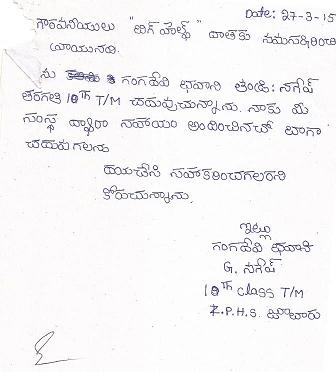 Date: 27-3-15
గౌరవనీయులు "బిగ్ హెల్ప్" వారికి నమస్కరించి
వ్రాయునది.
ను గంగదేవి భవాని తండ్రి: నగేష్
తరగతి 10th T/M చదువుచున్నాను. నాకు మీ
సంస్థ ద్వారా సహాయం అందించినచో బాగా
చదువగలను
దయచేసి సహకరించగలరని
కోరుచున్నాను.
ఇట్లు
గంగదేవి భవాని
G. నగేష్
10th class T/M
Z.P.H.S.